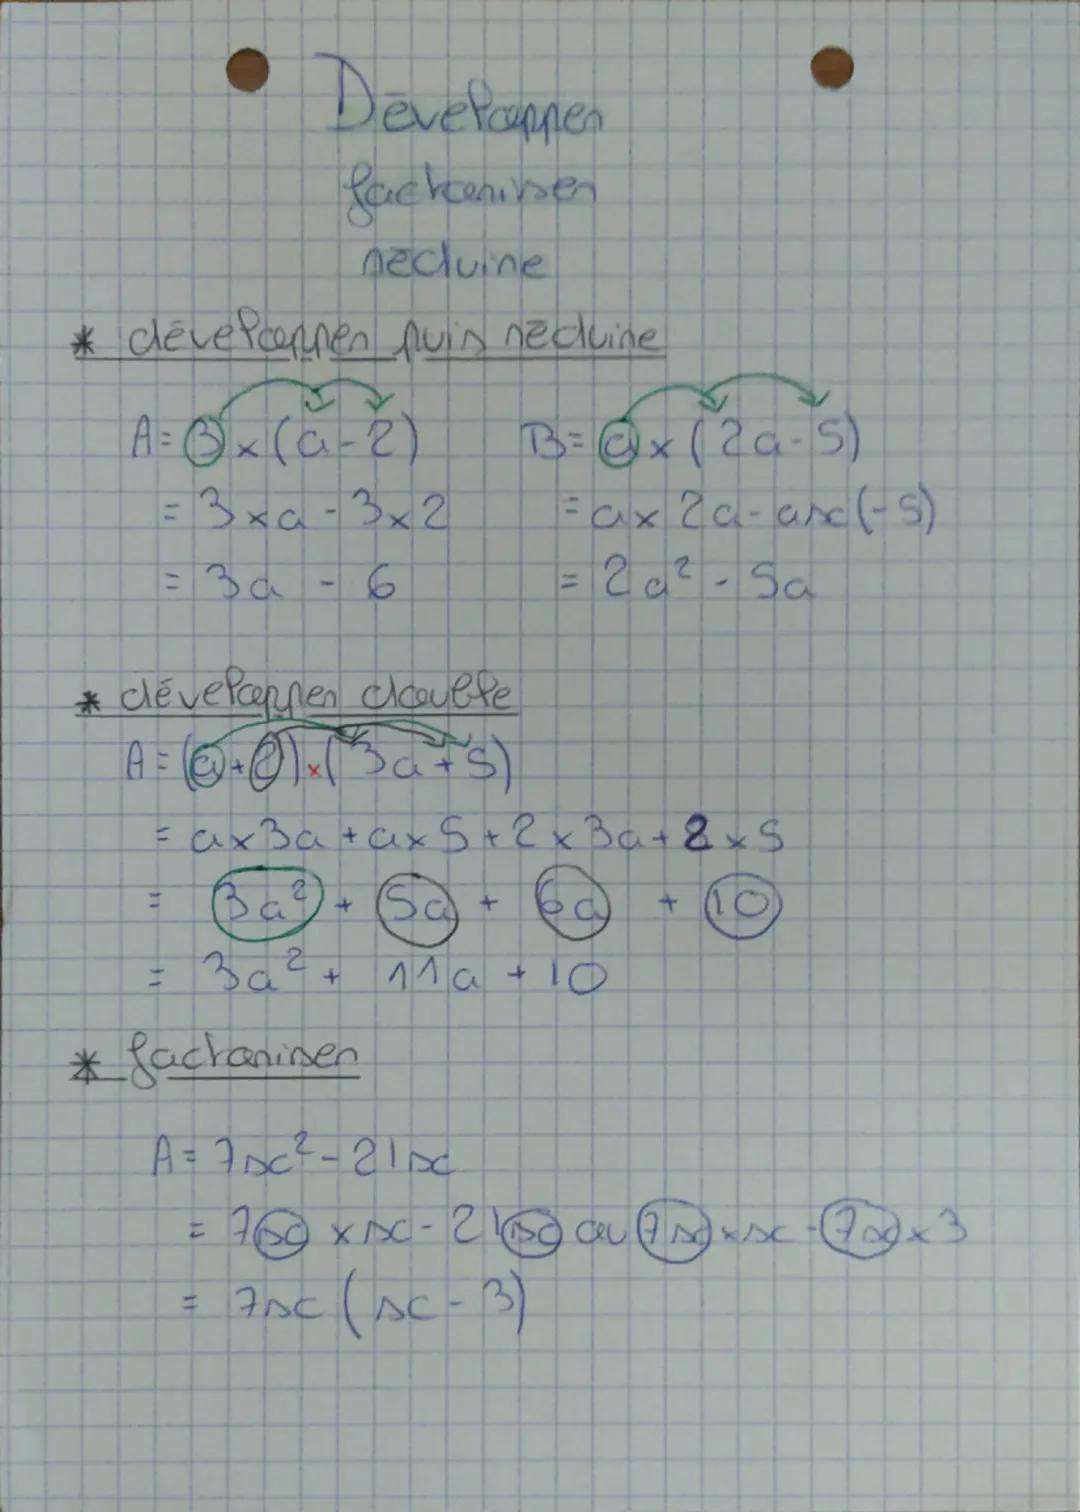 Développer
factoriser
réduire
* développer puis réduire
A = 3 × (a - 2)
= 3 × a - 3 × 2
= 3a - 6
B = a × (2a - 5)
= a × 2a - a x (-5)
= 2a² - 5a
* développer double
A = (a + 2) × (3a + 5)
= a × 3a + a × 5 + 2 × 3a + 2 × 5
= 3a² + 5a + 6a + 10
= 3a² + 11a + 10
* factoriser
A = 7x² - 21x
= 7x × x - 21x ou 7x × x - 7x × 3
= 7x (x - 3)